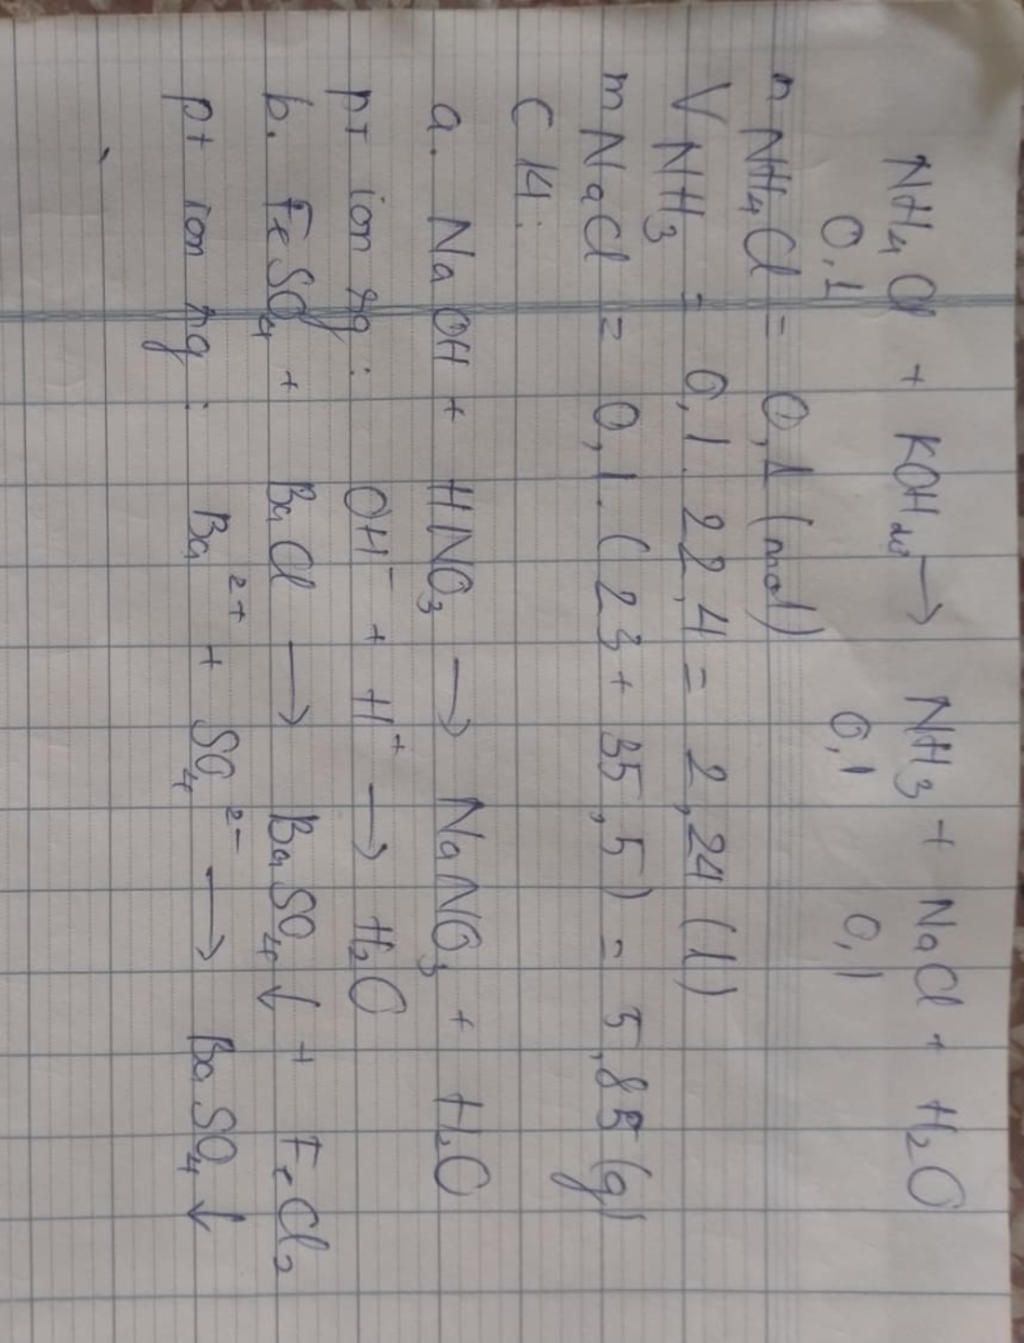 NH₄Cl + KOH dư → NH₃ + NaCl + H₂O
0,1 0,1 0,1
nNH₄Cl = 0,1 (mol)
VNH₃ = 0,1. 22,4 = 2,24 (l)
mNaCl = 0,1. (23 + 35,5) = 5,85 (g)
C14:
a. NaOH + HNO₃ → NaNO₃ + H₂O
pt ion rg: OH⁻ + H⁺ → H₂O
b. FeSO₄ + BaCl → BaSO₄↓ + FeCl₂
pt ion rg: Ba²⁺ + SO₄²⁻ → BaSO₄↓